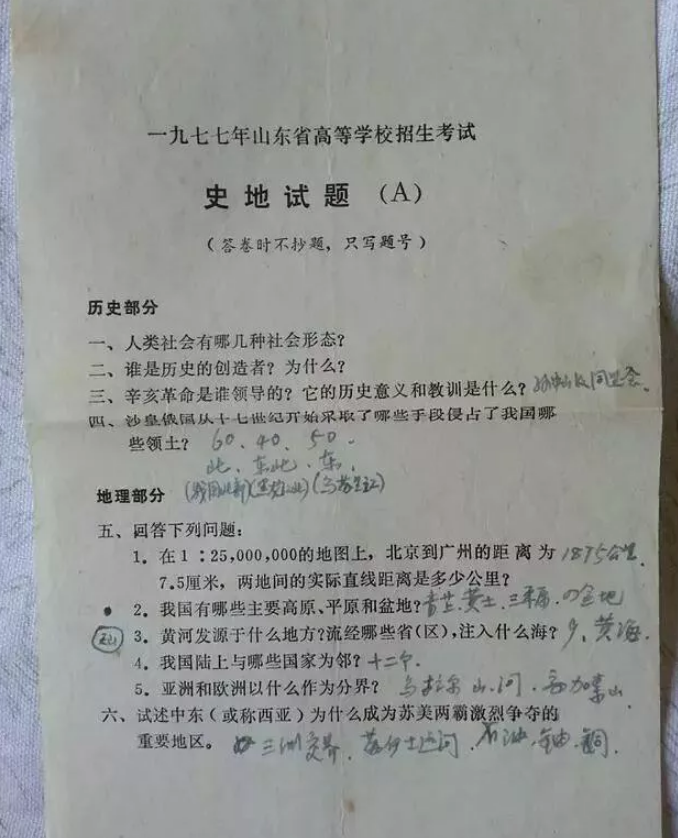 一九七七年山东省高等学校招生考试
史地试题（A）
（答卷时不抄题，只写题号）
历史部分
一、人类社会有哪几种社会形态？
二、谁是历史的创造者？为什么？
三、辛亥革命是谁领导的？它的历史意义和教训是什么？
四、沙皇俄国从十七世纪开始采取了哪些手段侵占了我国哪
些领土？ 60、40、50、
北、东北、东、
地理部分 (乌苏里江)
五、回答下列问题：
1．在1：25,000,000的地图上，北京到广州的距离为 1875公里.
7.5厘米，两地间的实际直线距离是多少公里？
2．我国有哪些主要高原、平原和盆地？ 黄土、三
3．黄河发源于什么地方？流经哪些省（区），注入什么海？ 9、黄海.
4．我国陆上与哪些国家为邻？ 十二个.
5．亚洲和欧洲以什么作为分界？ 乌拉尔山.河.
六、试述中东（或称西亚）为什么成为苏美两霸激烈争夺的
重要地区。 三洲交界、苏伊士运河、石油、铀、铜.